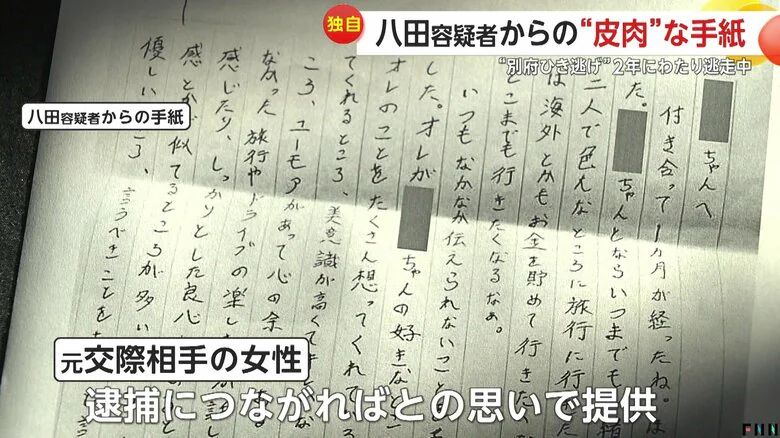 独自
八田容疑者からの“皮肉”な手紙
“別府ひき逃げ”2年にわたり逃走中
八田容疑者からの手紙
ちゃんへ
付き合って1ヵ月が経ったね。
た。 ちゃんとならいつまでも
二人で色んなところに旅行に行
は海外とかもお金を貯めて行きた
どこまでも行きたくなるなぁ。
いつもなかなか伝えられないこと
した。オレが ちゃんの好きなとこ
オレのことをたくさん想ってくれて
てくれるところ、美意識が高くてき
ころ、ユーモアがあって心の余
なかった旅行やドライブの楽し
感じたり、しっかりとした良心
感とか似てるところが多い
優しい ころ、言うべきことを
元交際相手の女性
逮捕につながればとの思いで提供
FNN